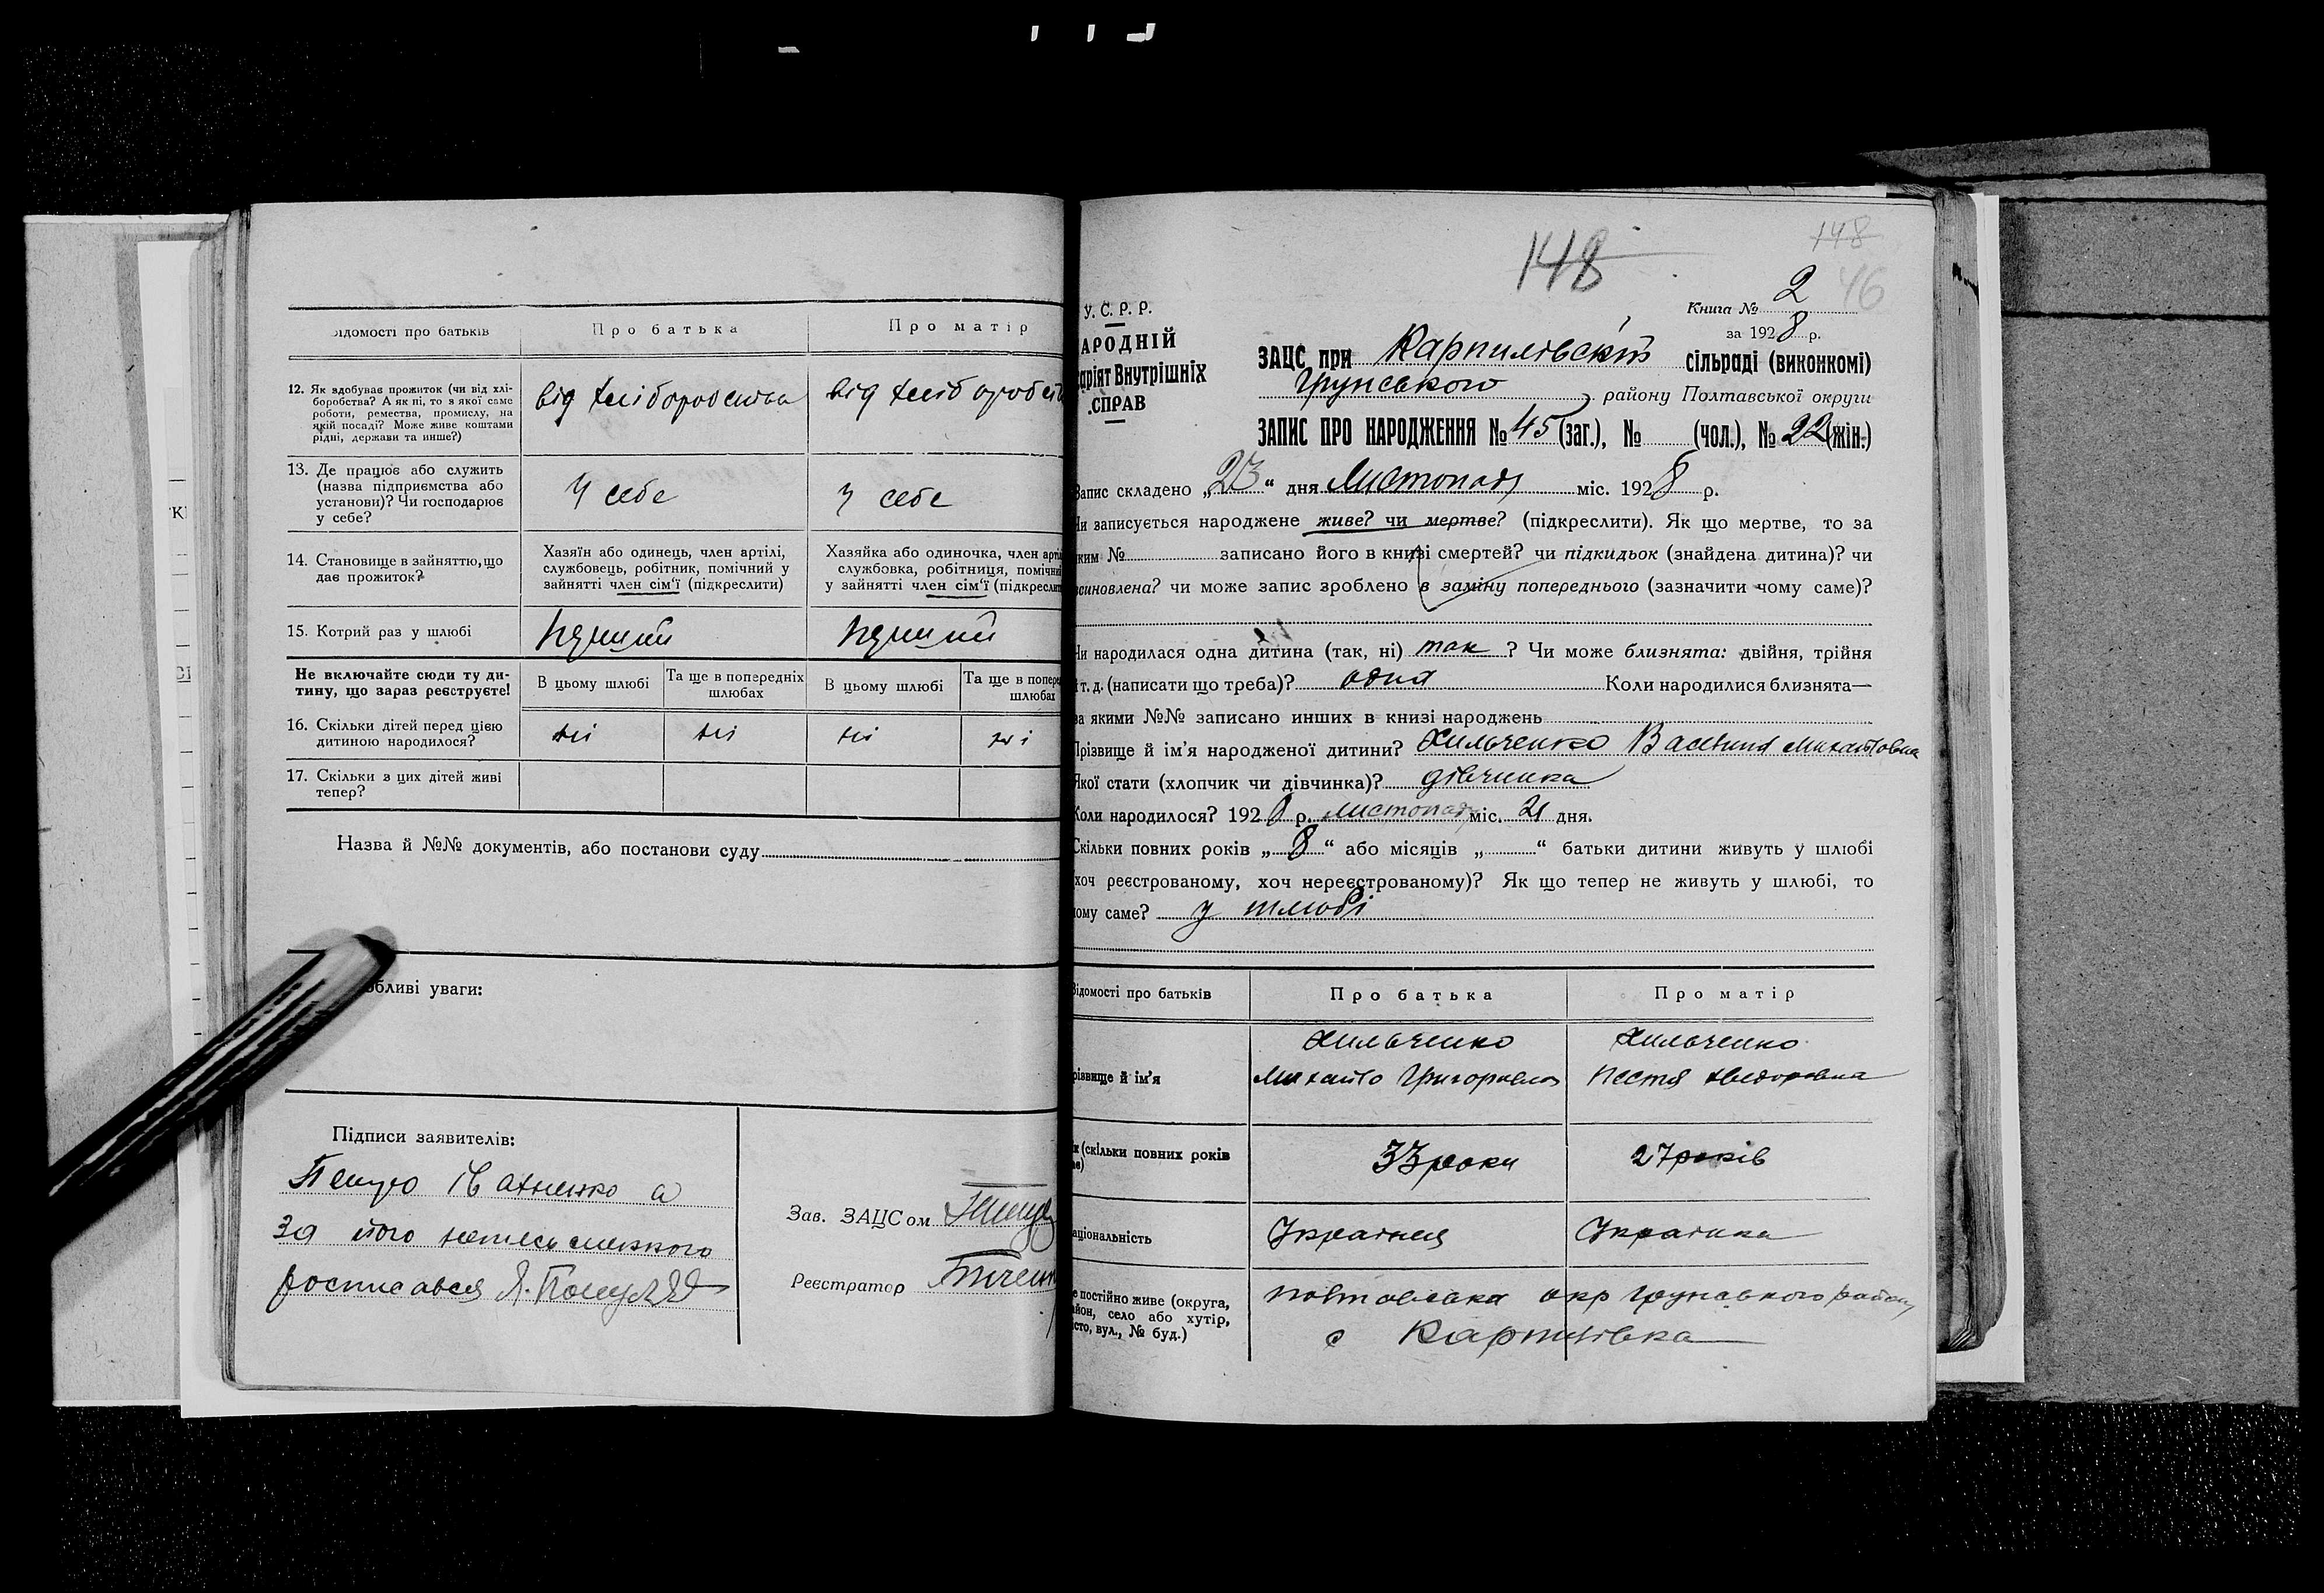 відомості про батьків
Про батька
Про матір
12. Як здобуває прожиток (чи від хлі-
боробства? А як ні, то з якої саме
роботи, ремества, промислу, на
якій посаді? Може живе коштами
рідні, держави та инше?)
від хліборобства
від хлібороб
13. Де працює або служить
(назва підприємства або
установи)? Чи господарює
у себе?
У себе
у себе
14. Становище в зайняттю, що
дає прожиток?
Хазяїн або одинець, член артілі,
службовець, робітник, помічний у
зайнятті член сім'ї (підкреслити)
Хазяйка або одиночка, член арті
службовка, робітниця, помічни
у зайнятті член сім'ї (підкреслит
15. Котрий раз у шлюбі
Перший
Перший
Не включайте сюди ту ди-
тину, що зараз реєструєте!
В цьому шлюбі
Та ще в попередніх
шлюбах
В цьому шлюбі
Та ще в попере
шлюбах
16. Скільки дітей перед цією
дитиною народилося?
ні
ні
ні
ні
17. Скільки з цих дітей живі
тепер?
Назва й №№ документів, або постанови суду
бливі уваги:
Підписи заявителів:
а
за його неписьменного
росписався Я.
Зав. ЗАЦСом
Реєстратор
148
148
46
У. С. Р. Р.
АРОДНІЙ
аріят Внутрішніх
СПРАВ
Книга № 2
за 1928 р.
ЗАЦС при Карпилівскій сільраді (виконкомі)
Грунського району Полтавської округи
ЗАПИС ПРО НАРОДЖЕННЯ № 45 (заг.), № (чол.), № 22 (жін.)
Запис складено „23" дня Листопаду міс. 1928 р.
Чи записується народжене живе? чи мертве? (підкреслити). Як що мертве, то за
яким № записано його в книзі смертей? чи підкидьок (знайдена дитина)? чи
усиновлена? чи може запис зроблено в заміну попереднього (зазначити чому саме)?
Чи народилася одна дитина (так, ні) так ? Чи може близнята: двійня, трійня
і т. д. (написати що треба)? одна Коли народилися близнята—
за якими №№ записано инших в книзі народжень
Прізвище й ім'я народженої дитини? Хильченко Михайловна
Якої стати (хлопчик чи дівчинка)? дівчинка
Коли народилося? 1928 р. листопаду міс. 21 дня.
Скільки повних років „8" або місяців „ " батьки дитини живуть у шлюбі
хоч реєстрованому, хоч нереєстрованому)? Як що тепер не живуть у шлюбі, то
чому саме? у шлюбі
Відомості про батьків
Про батька
Про матір
різвище й ім'я
Хильченко
Михайло Григорович
Хильченко
Настя Федоровна
(скільки повних років
33 роки
27 років
аціональність
Українец
Українка
е постійно живе (округа,
айон, село або хутір,
сто, вул., № буд.)
Полтавська окр Грунського району
с Карпилівка